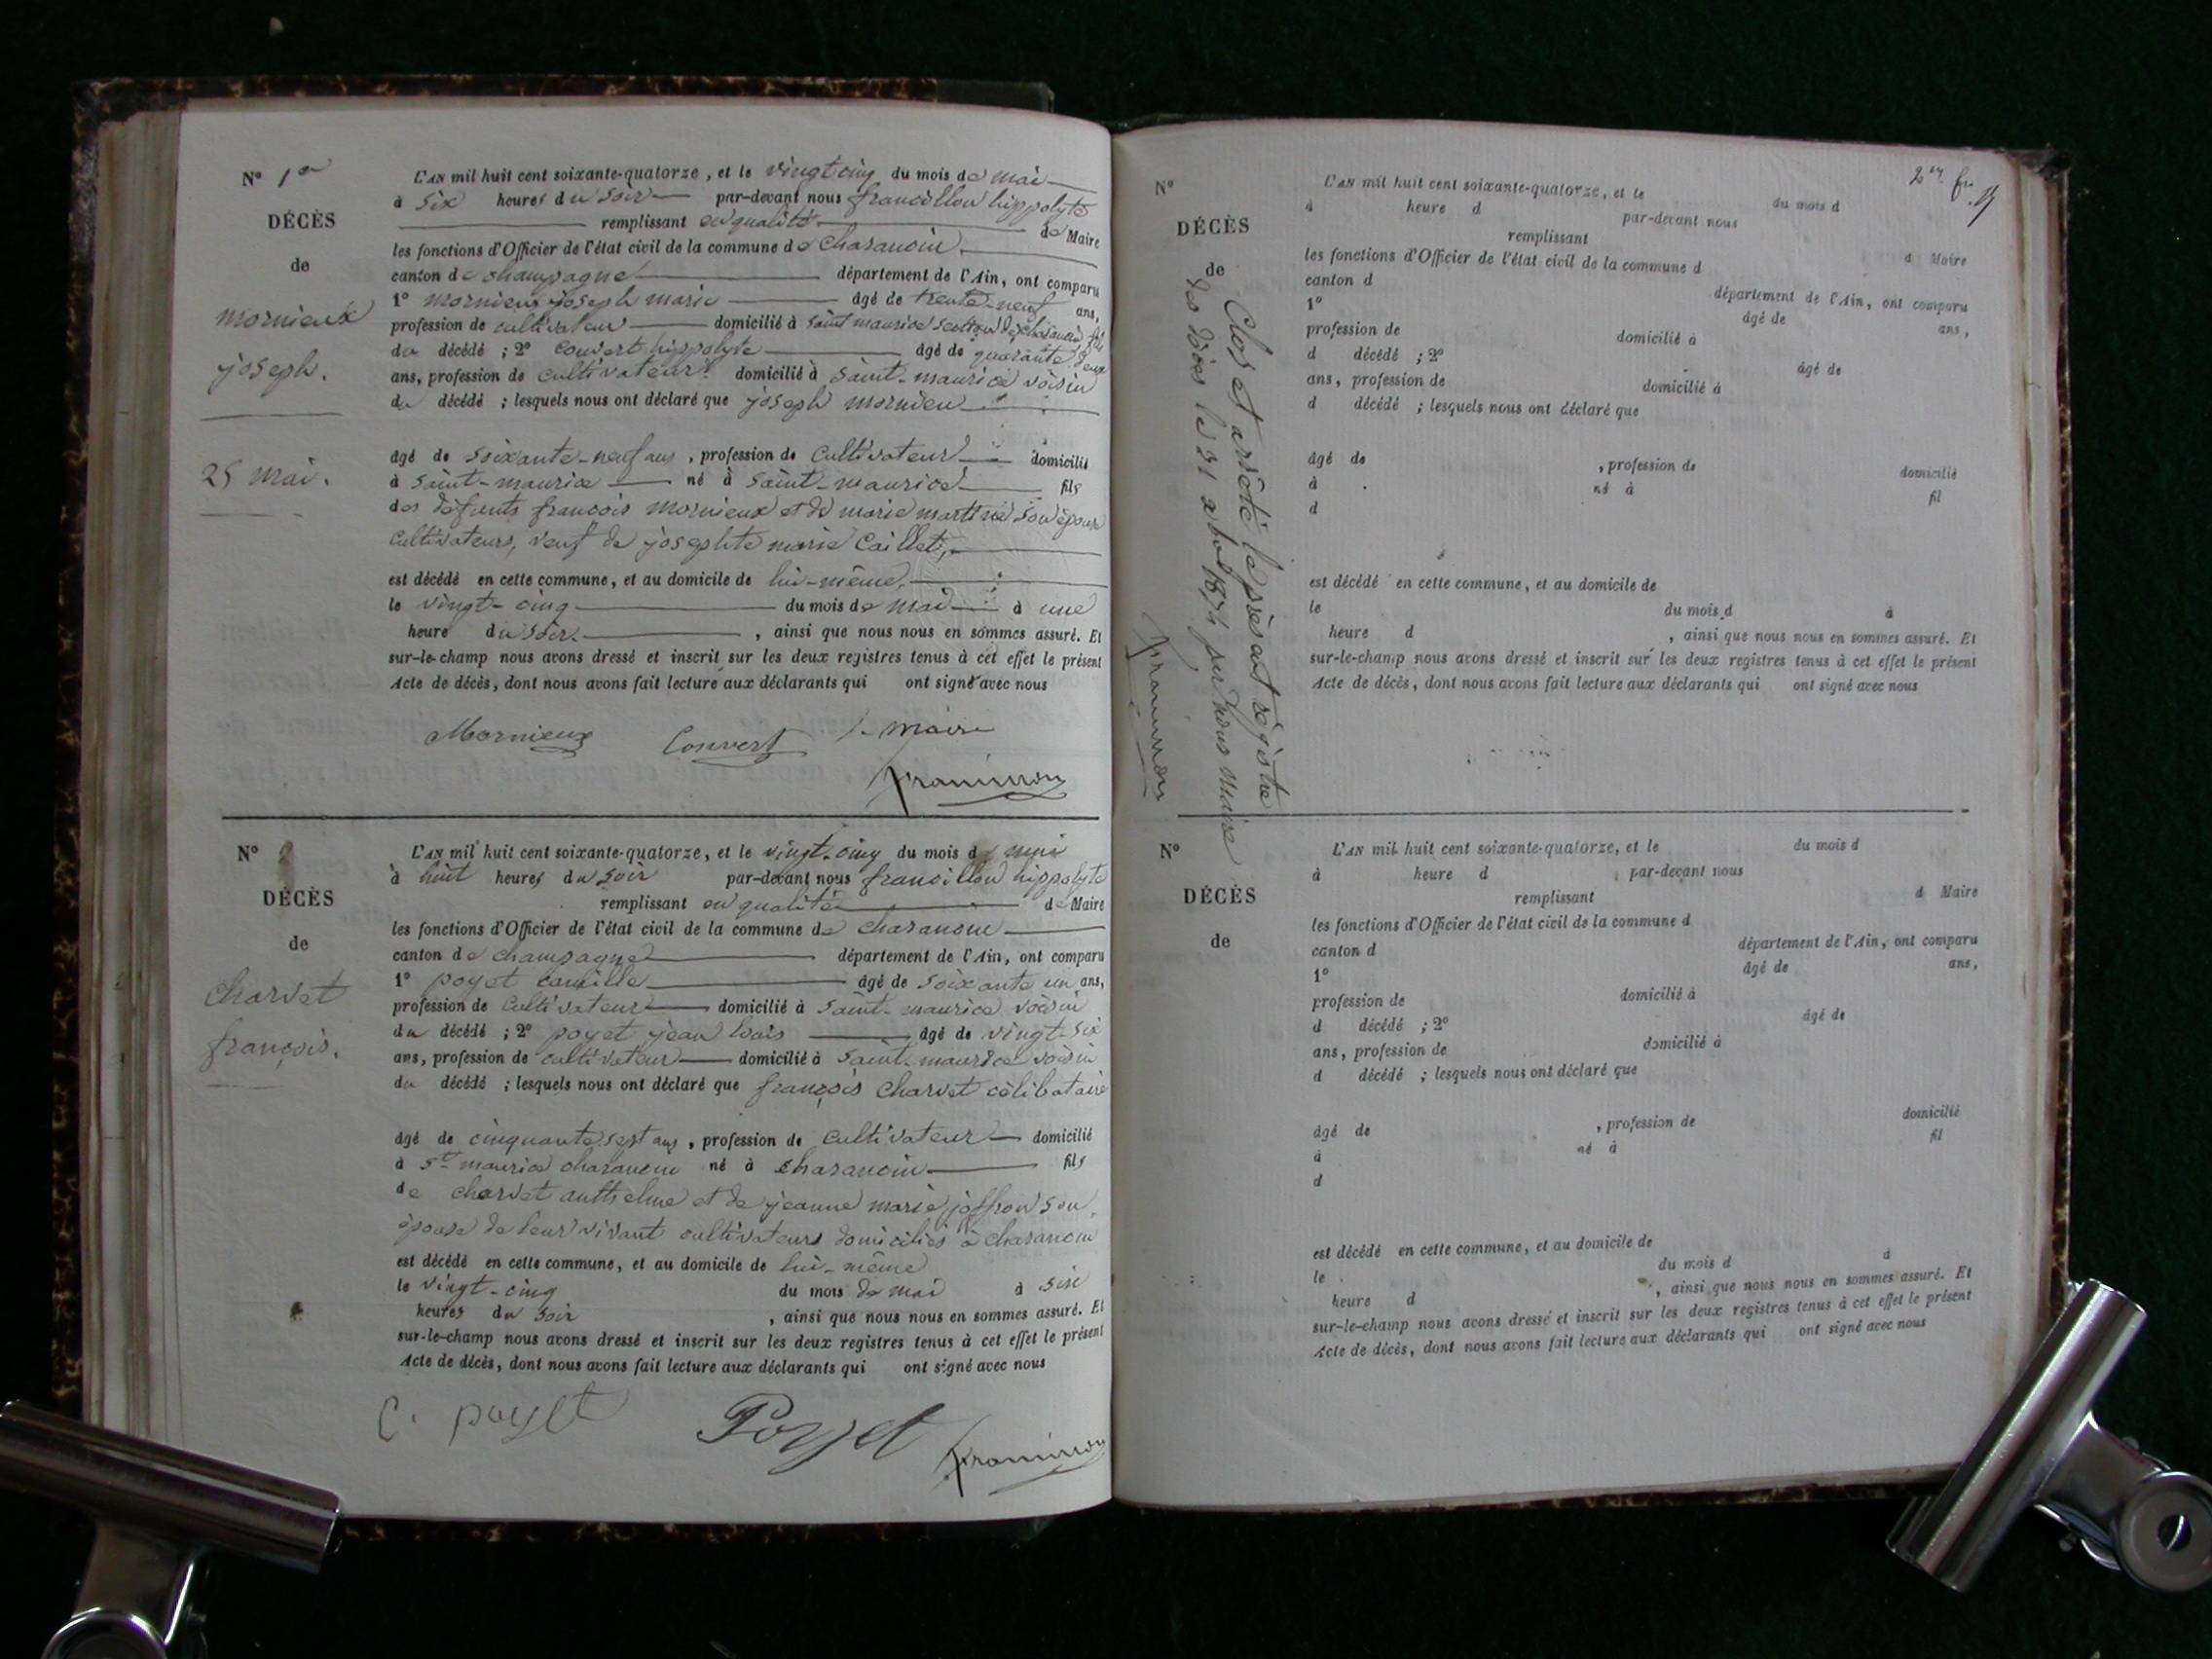 N° 1er
DÉCÈS
de
mornieux
joseph.
25 mai.
L'AN mil huit cent soixante-quatorze, et le vingt cinq du mois de mai
à six heures du soir par-devant nous francillon hippolyte
remplissant en qualité de Maire
les fonctions d'Officier de l'état civil de la commune de Charancin
canton de champagne département de l'Ain, ont comparu
1° mornieux joseph marie âgé de trente-neuf ans,
profession de cultivateur domicilié à saint maurice section de charancin fils
du décédé ; 2° convert hippolyte âgé de quarante deux
ans, profession de cultivateur domicilié à saint-maurice voisin
du décédé ; lesquels nous ont déclaré que joseph mornieux
âgé de soixante-neuf ans, profession de cultivateur domicilié
à saint-maurice né à saint-maurice fils
des défunts françois mornieux et de marie martine son épouse
cultivateurs, veuf de josephte marie Caillet,
est décédé en cette commune, et au domicile de lui-même,
le vingt-cinq du mois de mai à une
heure du soir, ainsi que nous nous en sommes assuré. Et
sur-le-champ nous avons dressé et inscrit sur les deux registres tenus à cet effet le présent
Acte de décès, dont nous avons fait lecture aux déclarants qui ont signé avec nous
Mornieux Convert le maire
francillon
N° 2
DÉCÈS
de
charvet
françois.
L'AN mil huit cent soixante-quatorze, et le vingt-cinq du mois de mai
à huit heures du soir par-devant nous francillon hippolyte
remplissant en qualité de Maire
les fonctions d'Officier de l'état civil de la commune de charancin
canton de champagne département de l'Ain, ont comparu
1° poyet camille âgé de soixante un ans,
profession de cultivateur domicilié à saint-maurice voisin
du décédé ; 2° poyet jean louis âgé de vingt-six
ans, profession de cultivateur domicilié à saint-maurice voisin
du décédé ; lesquels nous ont déclaré que françois charvet célibataire
âgé de cinquante sept ans, profession de cultivateur domicilié
à st maurice charancin né à charancin fils
de charvet anthelme et de jeanne marie joffron son
épouse de leur vivant cultivateurs domiciliés à charancin
est décédé en cette commune, et au domicile de lui-même
le vingt-cinq du mois de mai à six
heures du soir, ainsi que nous nous en sommes assuré. Et
sur-le-champ nous avons dressé et inscrit sur les deux registres tenus à cet effet le présent
Acte de décès, dont nous avons fait lecture aux déclarants qui ont signé avec nous
C. poyet Poyet francillon
2em
N°
DÉCÈS
de
Clos et arrêté le présent régistre
des décès le 31 xbre 1874 par nous maire
francillon
L'AN mil huit cent soixante-quatorze, et le du mois d
à heure d par-devant nous
remplissant d Maire
les fonctions d'Officier de l'état civil de la commune d
canton d département de l'Ain, ont comparu
1° âgé de ans,
profession de domicilié à
d décédé ; 2° âgé de
ans, profession de domicilié à
d décédé ; lesquels nous ont déclaré que
âgé de , profession de domicilié
à né à fil
d
est décédé en cette commune, et au domicile de
le du mois d à
heure d , ainsi que nous nous en sommes assuré. Et
sur-le-champ nous avons dressé et inscrit sur les deux registres tenus à cet effet le présent
Acte de décès, dont nous avons fait lecture aux déclarants qui ont signé avec nous
N°
DÉCÈS
de
L'AN mil huit cent soixante-quatorze, et le du mois d
à heure d par-devant nous
remplissant d Maire
les fonctions d'Officier de l'état civil de la commune d
canton d département de l'Ain, ont comparu
1° âgé de ans,
profession de domicilié à
d décédé ; 2° âgé de
ans, profession de domicilié à
d décédé ; lesquels nous ont déclaré que
âgé de , profession de domicilié
à né à fil
d
est décédé en cette commune, et au domicile de
le du mois d à
heure d , ainsi que nous nous en sommes assuré. Et
sur-le-champ nous avons dressé et inscrit sur les deux registres tenus à cet effet le présent
Acte de décès, dont nous avons fait lecture aux déclarants qui ont signé avec nous